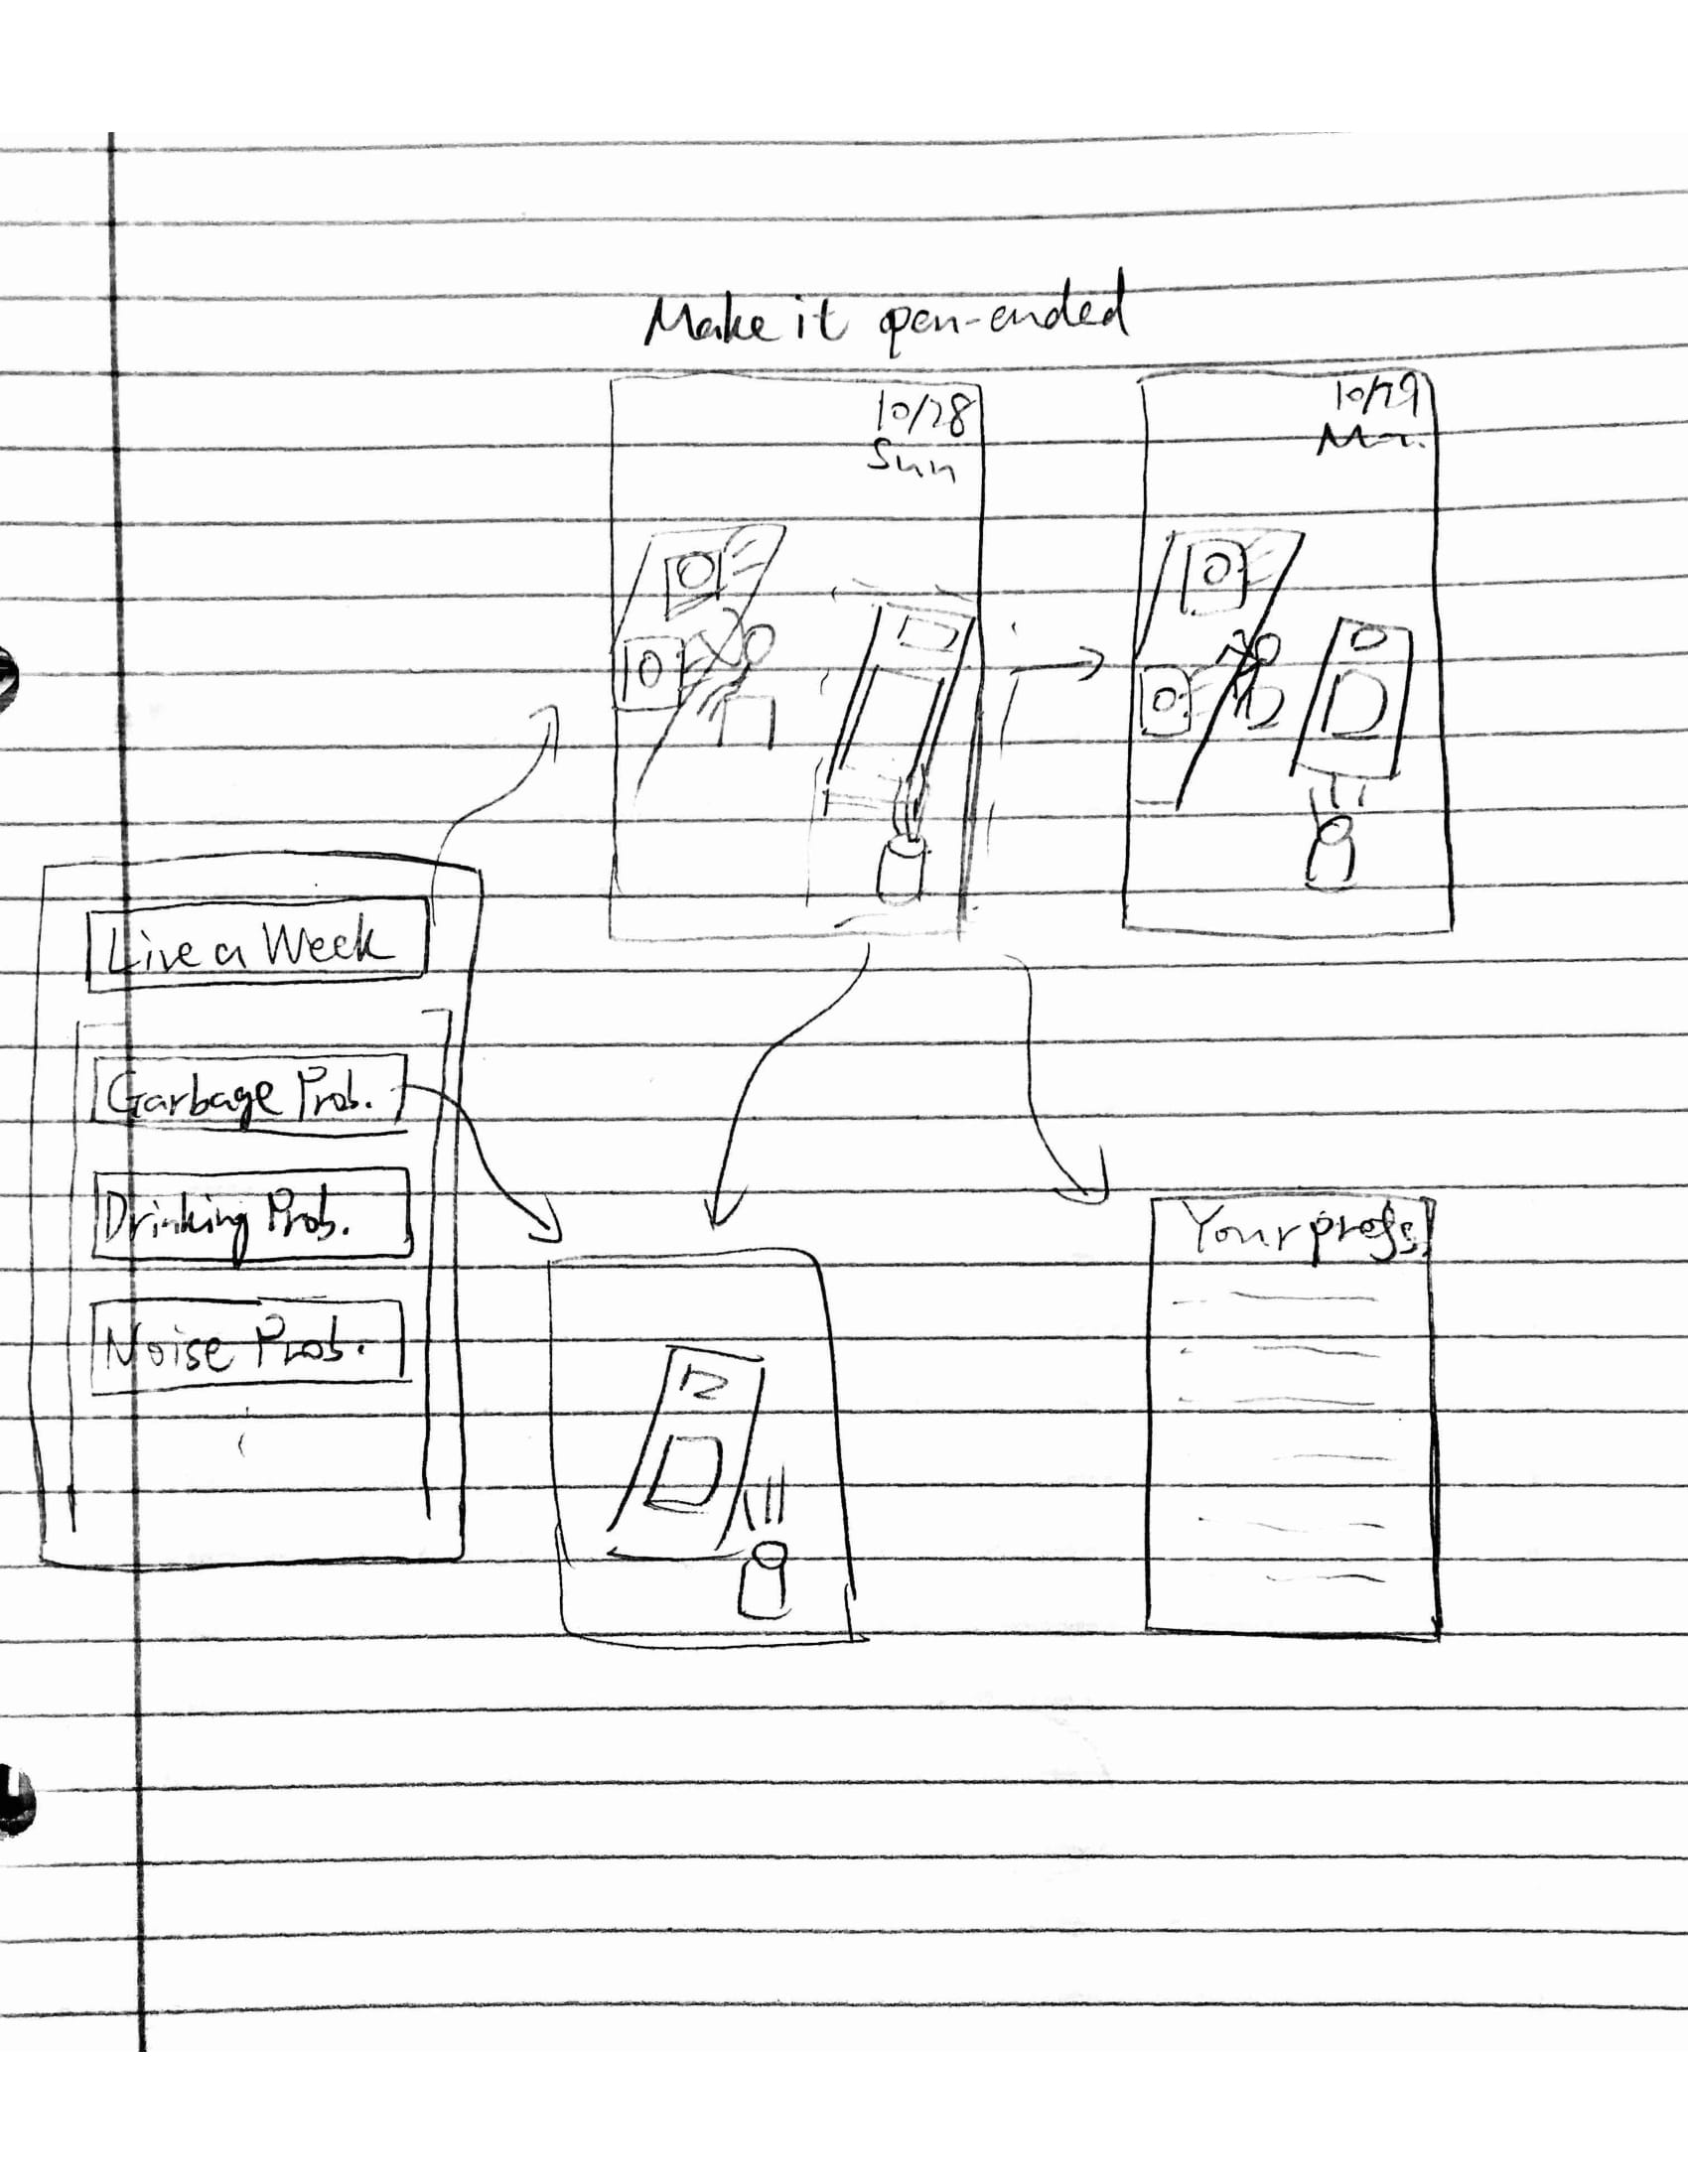 Make it open-ended
10/28
Sun
10/29
Mon.
Live a Week
Garbage Prob.
Drinking Prob.
Noise Prob.
Your prefs.